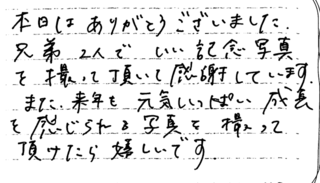 本日は ありがとうございました.
兄弟 2人で いい 記念 写真
を 撮って 頂いて 感謝しています.
また 来年も 元気いっぱい 成長
を 感じられる 写真を 撮って
頂けたら 嬉しいです.